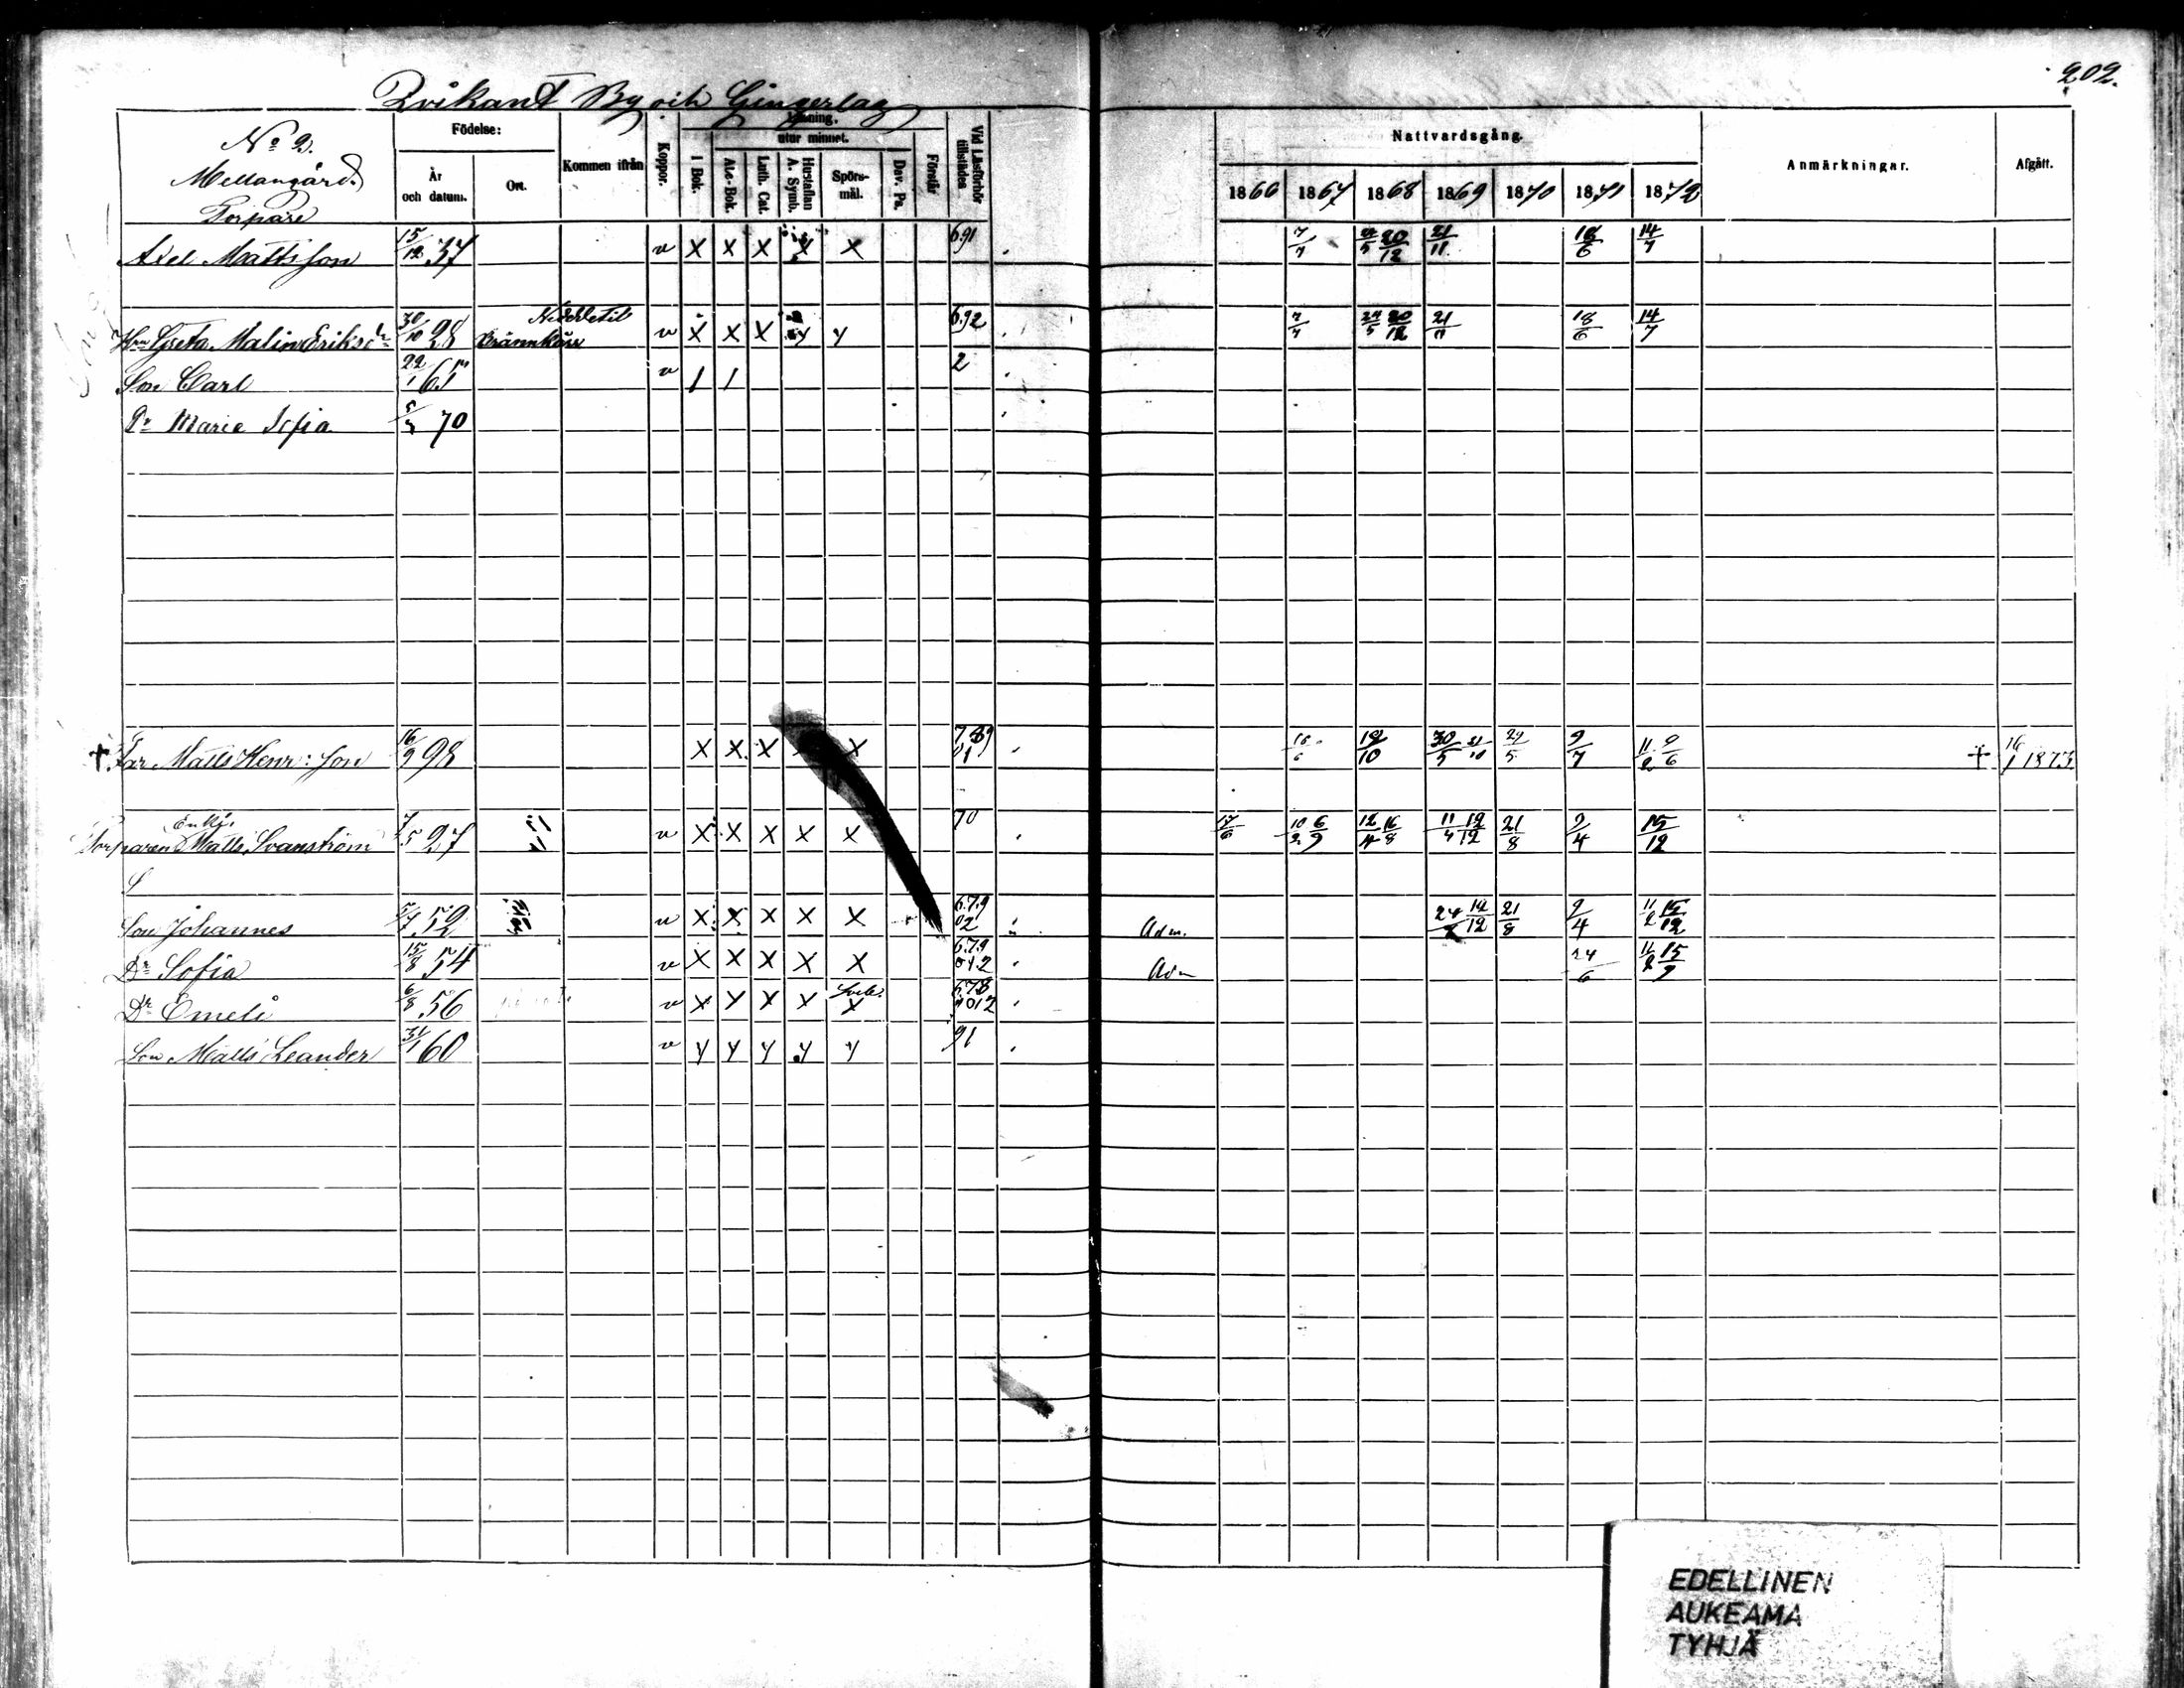 202.
Qvikant By och Gingerlag
No 2.
Mellangård.
Torpare
Födelse:
År och datum.
Ort.
Kommen ifrån
Koppor.
Läsning.
utur minnet.
I Bok.
A.b.c-Bok.
Luth. Cat.
Hustaflan A. Symb.
Spörs-mål.
Dav. Ps.
Förstår
Vid Läsförhör tillstädes
Nattvardsgång.
1866 1867 1868 1869 1870 1871 1872
Anmärkningar.
Afgått.
Axel Mattsson 15/12 37 v X X X X X 691 7/7 20/12 21/11 18/6 14/7
Nederletil
Hru Greta Malin Eriksdr 30/10 28 Brännkärr v X X X y y 692 7/7 20/12 21/11 18/6 14/7
Son Carl 22/1 65 v / / 2
Dr Maria Sofia 70
†. Far Matts Henr: son 16/9 98 X X X X 18/10 30/5 24/5 9/7 11/2 9/6 † 16/1 1873.
Enkl.
Torparen Matts Svanström 7/5 27 v X X X X X 70 17/6 10/2 6/9 12/4 16/8 11/4 12/12 21/8 9/4 15/12
S
Son Johannes 52 v X X X X X 679 02 Adm. 12/12 21/8 9/4 11/2 15/12
Dr Sofia 15/8 54 v X X X X X 679 012 Adm 24/6 11/2 15/9
Dr Emeli 6/8 56 v X y X X X 678 9012
Son Matts Leander 31/1 60 v y y y y y 91
EDELLINEN
AUKEAMA
TYHJÄ